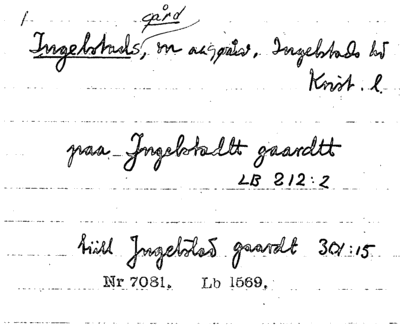 1
gård
Ingelstads, Ingelstads hd
Krist. l.
paa Jngelstadtt gaardtt
LB 212:2
till Jngelstad gaardt 301:15
Nr 7081. Lb 1569.